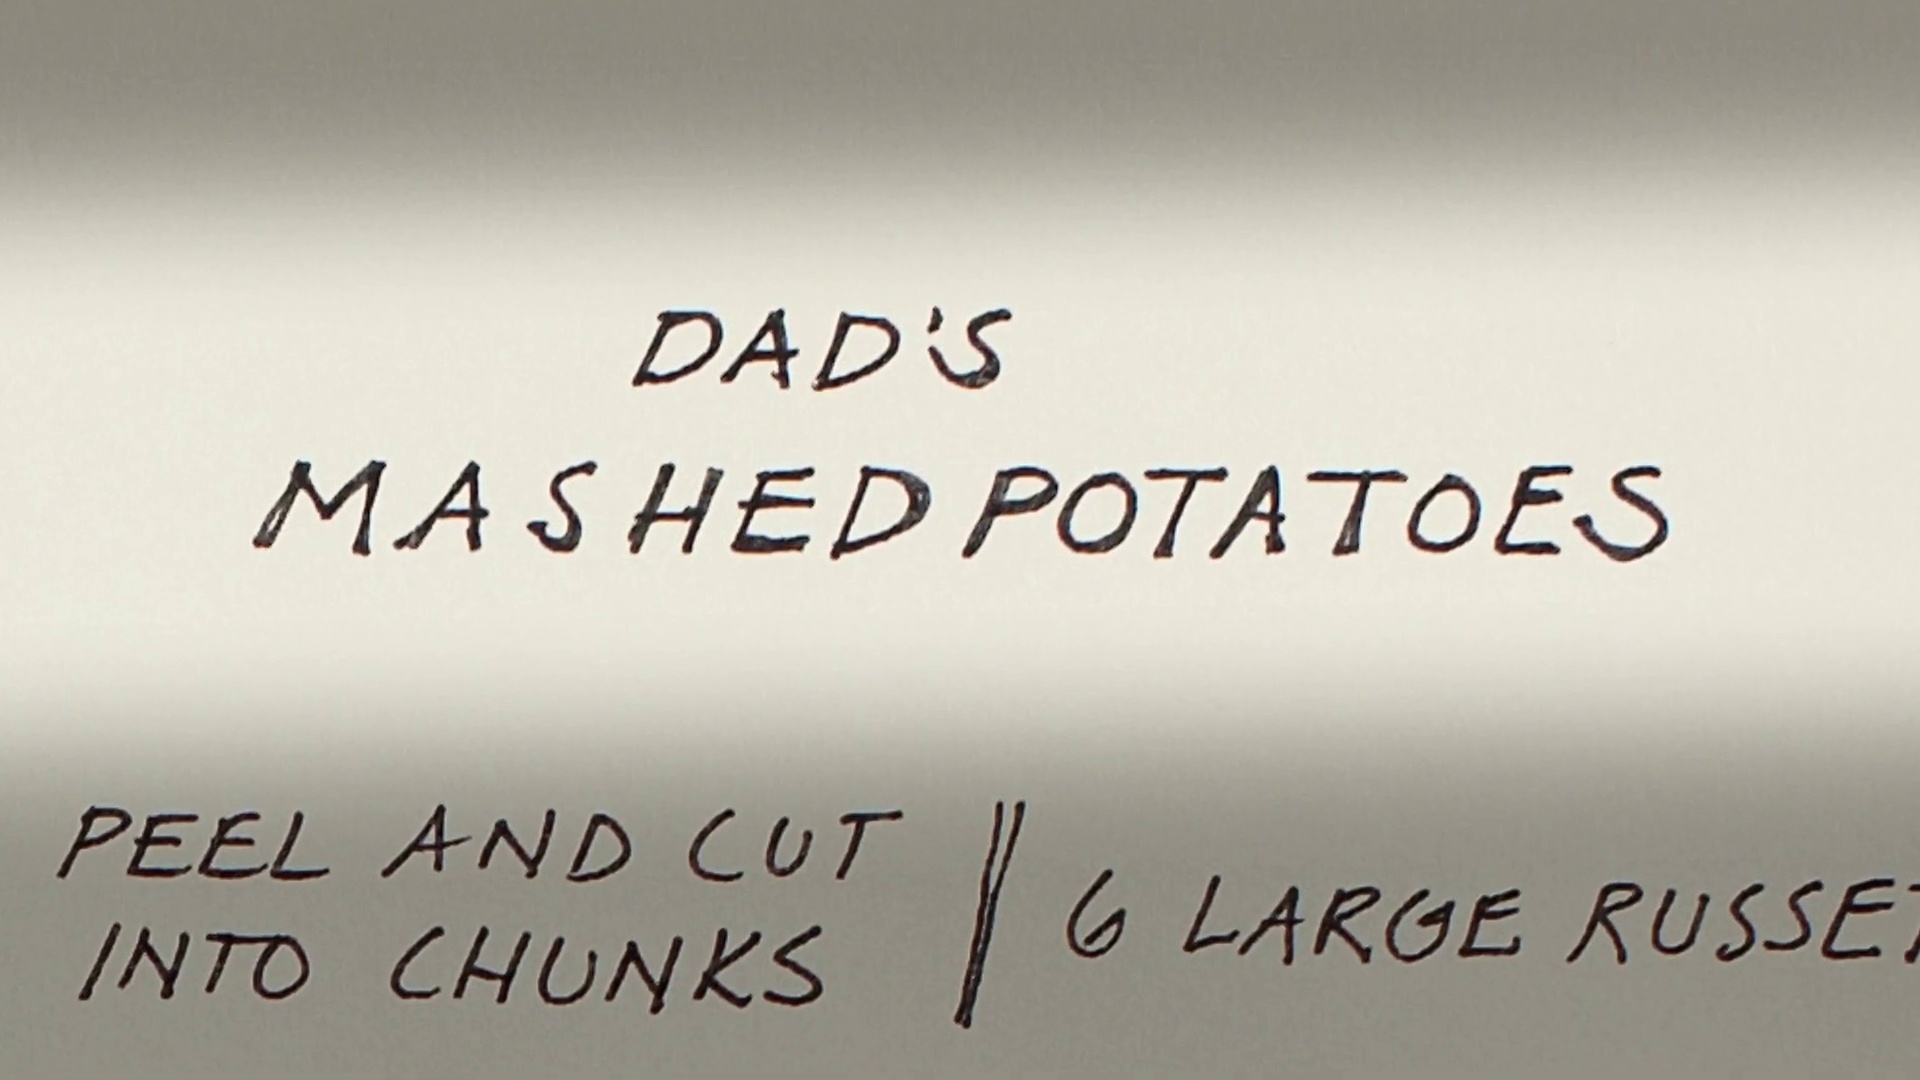 DAD'S
MASHED POTATOES
PEEL AND CUT
INTO CHUNKS
6 LARGE RUSSET